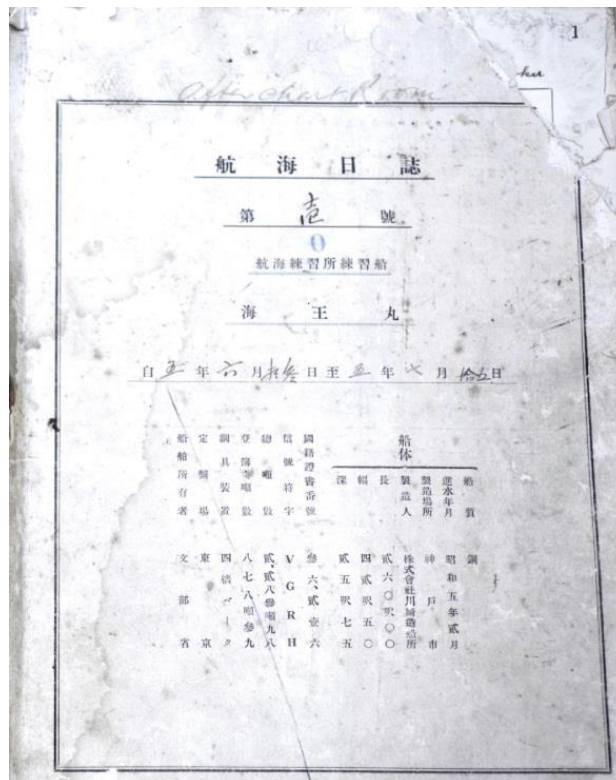 1
After Chart Room
航海日誌
第壱號
0
航海練習所練習船
海王丸
自五年六月拾叁日至五年七月拾五日
船体
船質 鋼
進水年月 昭和五年貳月
製造場所 神戸市
製造人 株式會社川崎造船所
長 貳六〇呎〇〇
幅 四貳呎五〇
深 貳五呎七五
國籍證書番號 參六、貳壹六
信號符字 VGRH
總噸數 貳、貳八參噸九八
登簿噸數 八七八噸參九
綱具裝置 四檣バーク
定繋場 東京
船舶所有者 文部省